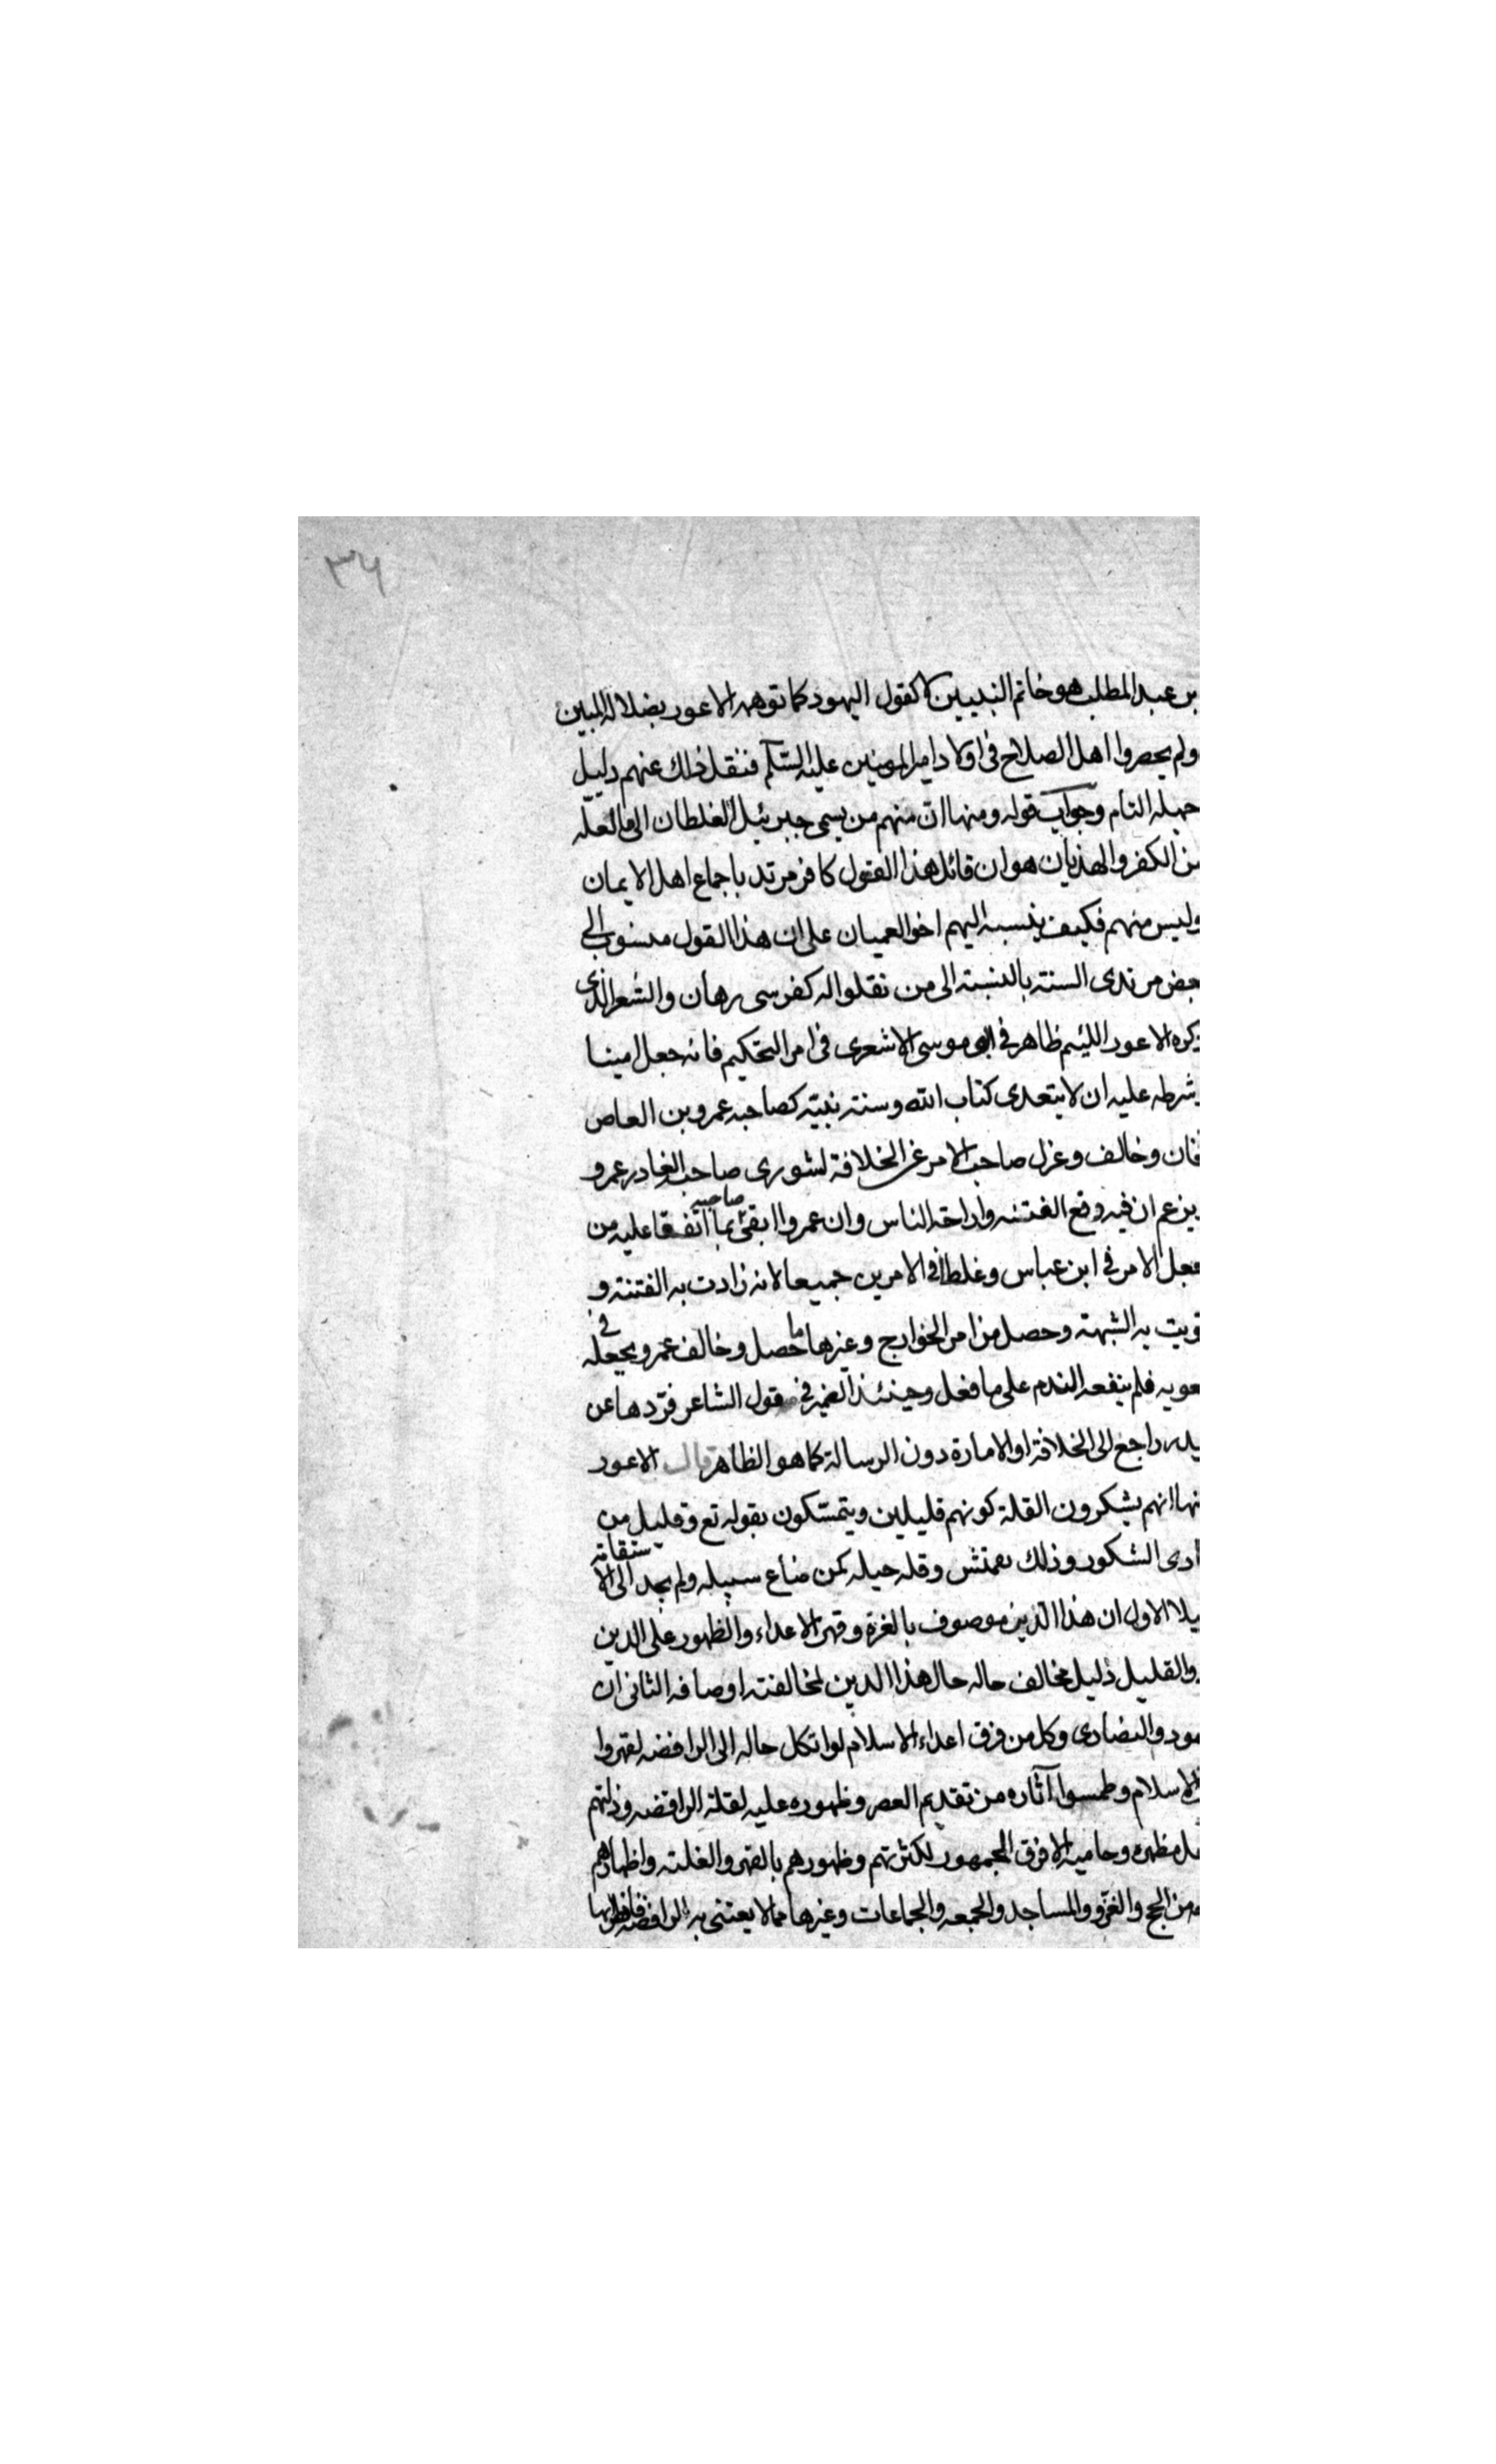 ٣٦
بن عبد المطلب هو خاتم النبيين لا كقول اليهود كما توهمه الاعور بضلاله المبين
ولم يحصروا اهل الصلاح فى اولاد امير المومنين عليه السلم فنقل ذلك عنهم دليل
جهله التام وجواب قوله ومنها ان منهم من يسمى جبرئيل الغلطان الى ما لعله
من الكفر والهذيان هو ان قائل هذا القول كافر مرتد باجماع اهل الايمان
وليس منهم فكيف ينسبه اليهم اخو العميان على ان هذا القول منسوب الى
بعض مرتدى السنة بالنسبة الى من نقلوا له كفرسى رهان والشعر الذى
ذكره الاعور اللئيم ظاهر فى ابى موسى الاشعرى فى امر التحكيم فانه جعل امينا
شرطه عليه ان لا يتعدى كتاب الله وسنة نبيه كصاحبه عمرو بن العاص
فخان وخالف وعزل صاحب الامر عن الخلافة لشورى صاحب الغادر عمرو
يزعم ان فيه وقع الفتنه واراحة الناس وان عمروا ابقى صاحبه بما اتفقا عليه من
جعل الامر فى ابن عباس وغلط فى الامرين جميعا لانه زادت به الفتنة و
قويت به الشبهة وحصل من امر الخوارج وغيرها ما حصل وخالف عمرو بجعله فى
معويه فلم ينفعه الندم على ما فعل وحينئذ الضمير فى قول الشاعر فردها عن
يده راجع الى الخلافة او الامارة دون الرسالة كما هو الظاهر قال الاعور
منها انهم يشكرون القلة كونهم قليلين ويتمسكون بقوله تع وقليل من
ادى الشكور وذلك وقله حيله كمن ضاع سبيله ولم يجد الى الاستقامة
يلا الاول ان هذا الدين موصوف بالغزة وقهر الاعداء والظهور على الدين
والقليل ذليل مخالف حاله حال هذا الدين لمخالفته اوصافه الثانى ان
هود والنصارى وكل من فرق اعداء الاسلام لو اتكل حاله الى الرافضه لقهروا
الاسلام وطمسوا آثاره من تقديم العصر وظهوره عليه لقلة الرافضه وذلتهم
بل مظهره وحاميه الا فرق الجمهور لكثرتهم وظهورهم بالقهر والغلبة واظهارهم
من الحج والغزو والمساجد والجمعه والجماعات وغيرها مما لا يعتنى به الرافضه